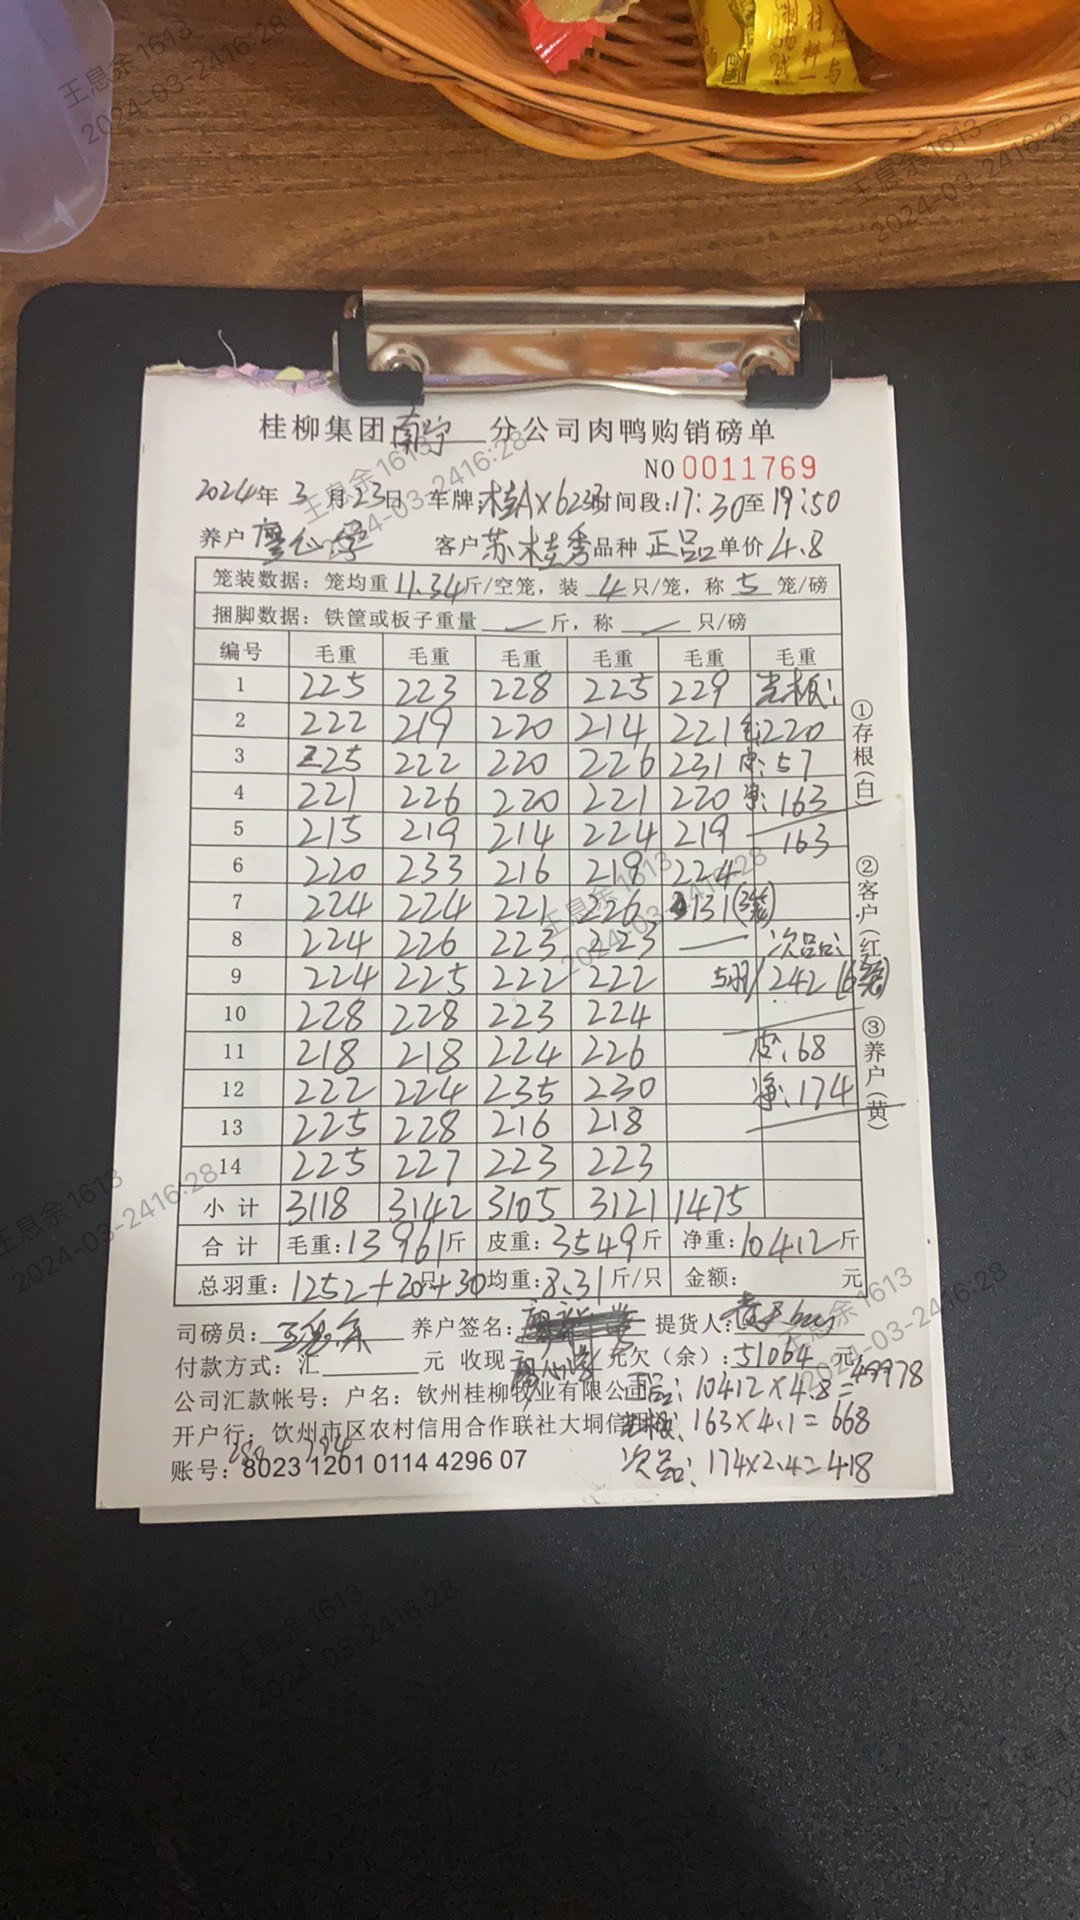 王息余 1613
2024-03-24 16:28
桂柳集团南宁分公司肉鸭购销磅单
NO 0011769
2024年3月23日 车牌:桂AX6233 时间段:17:30至19:50
养户 廖心学 客户 苏桂秀 品种 正品 单价 4.8
笼装数据: 笼均重 11.34 斤/空笼, 装 4 只/笼, 称 5 笼/磅
捆脚数据: 铁筐或板子重量 ✓ 斤, 称 ✓ 只/磅
编号 毛重 毛重 毛重 毛重 毛重 毛重
1 225 223 228 225 229 光板:
2 222 219 220 214 221 毛:220
3 225 222 220 226 231 皮:57
4 221 226 220 221 220 净:163
5 215 219 214 224 219 163
6 220 233 216 218 224
7 224 224 221 226 131(3笼)
8 224 226 223 223 — 次品:
9 224 225 222 222 5羽/242(6笼)
10 228 228 223 224
11 218 218 224 226 皮:68
12 222 224 235 230 净:174
13 225 228 216 218
14 225 227 223 223
小计 3118 3142 3105 3121 1475
合计 毛重:13961斤 皮重:3549斤 净重:10412斤
总羽重:1252+20只+30 均重:8.31斤/只 金额: 元
司磅员:王息余 养户签名: 提货人:
付款方式:汇 元 收现 廖心学 元欠(余):51064 元
公司汇款帐号: 户名: 钦州桂柳牧业有限公司 正品:10412×4.8=49978
开户行: 钦州市区农村信用合作联社大垌信用 光板:163×4.1=668
账号: 8023 1201 0114 4296 07 次品:174×2.4=418
①存根(白)
②客户(红)
③养户(黄)